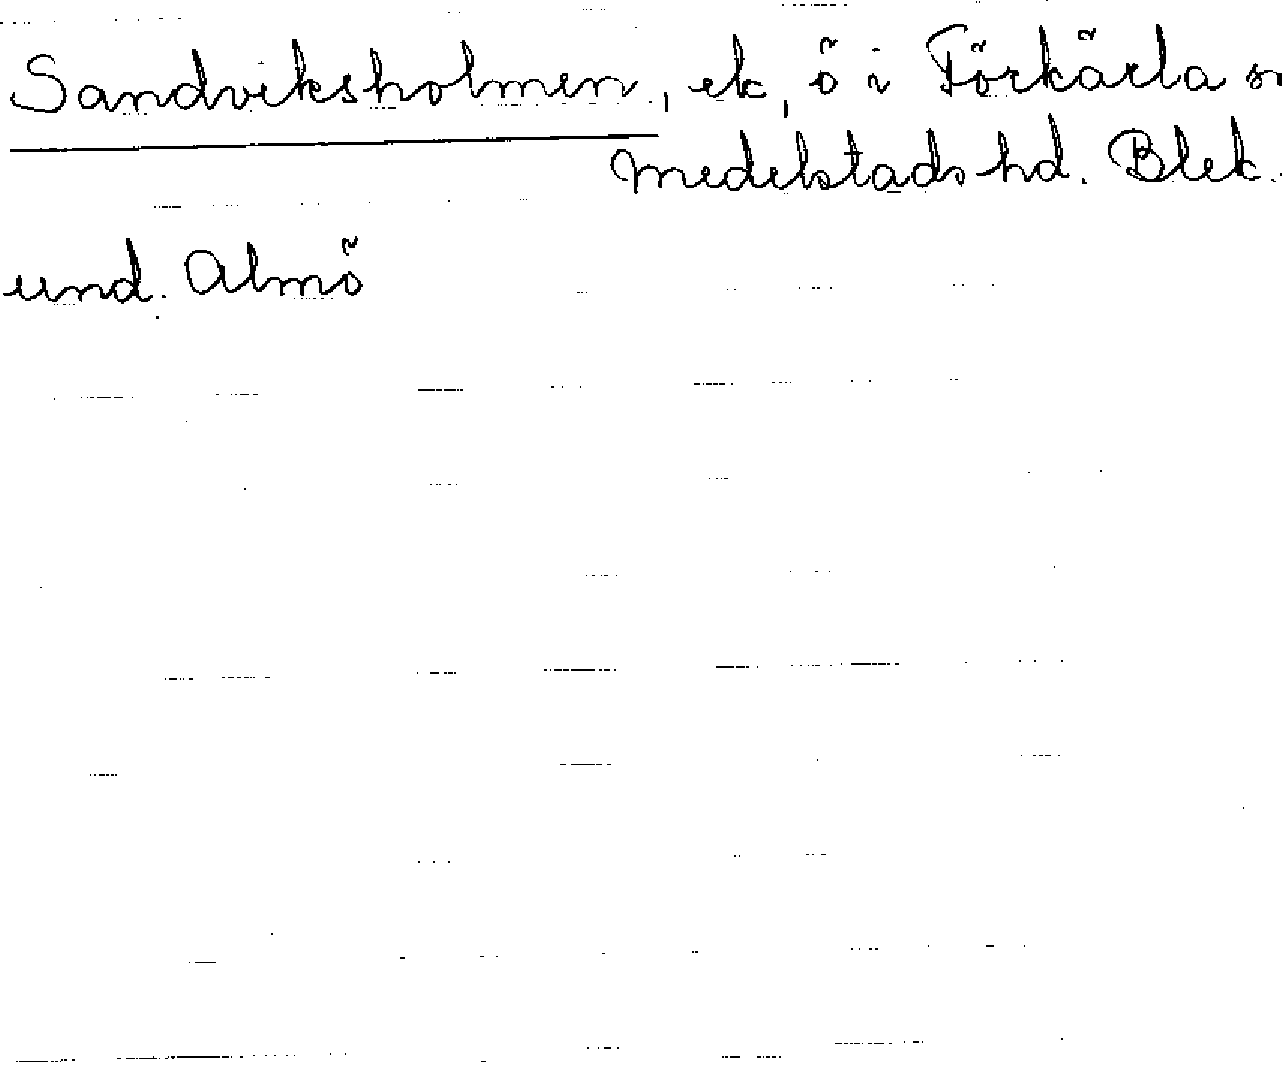 Sandviksholmen, ek, ö i Förkärla sn
Medelstads hd. Blek.
und. Almö